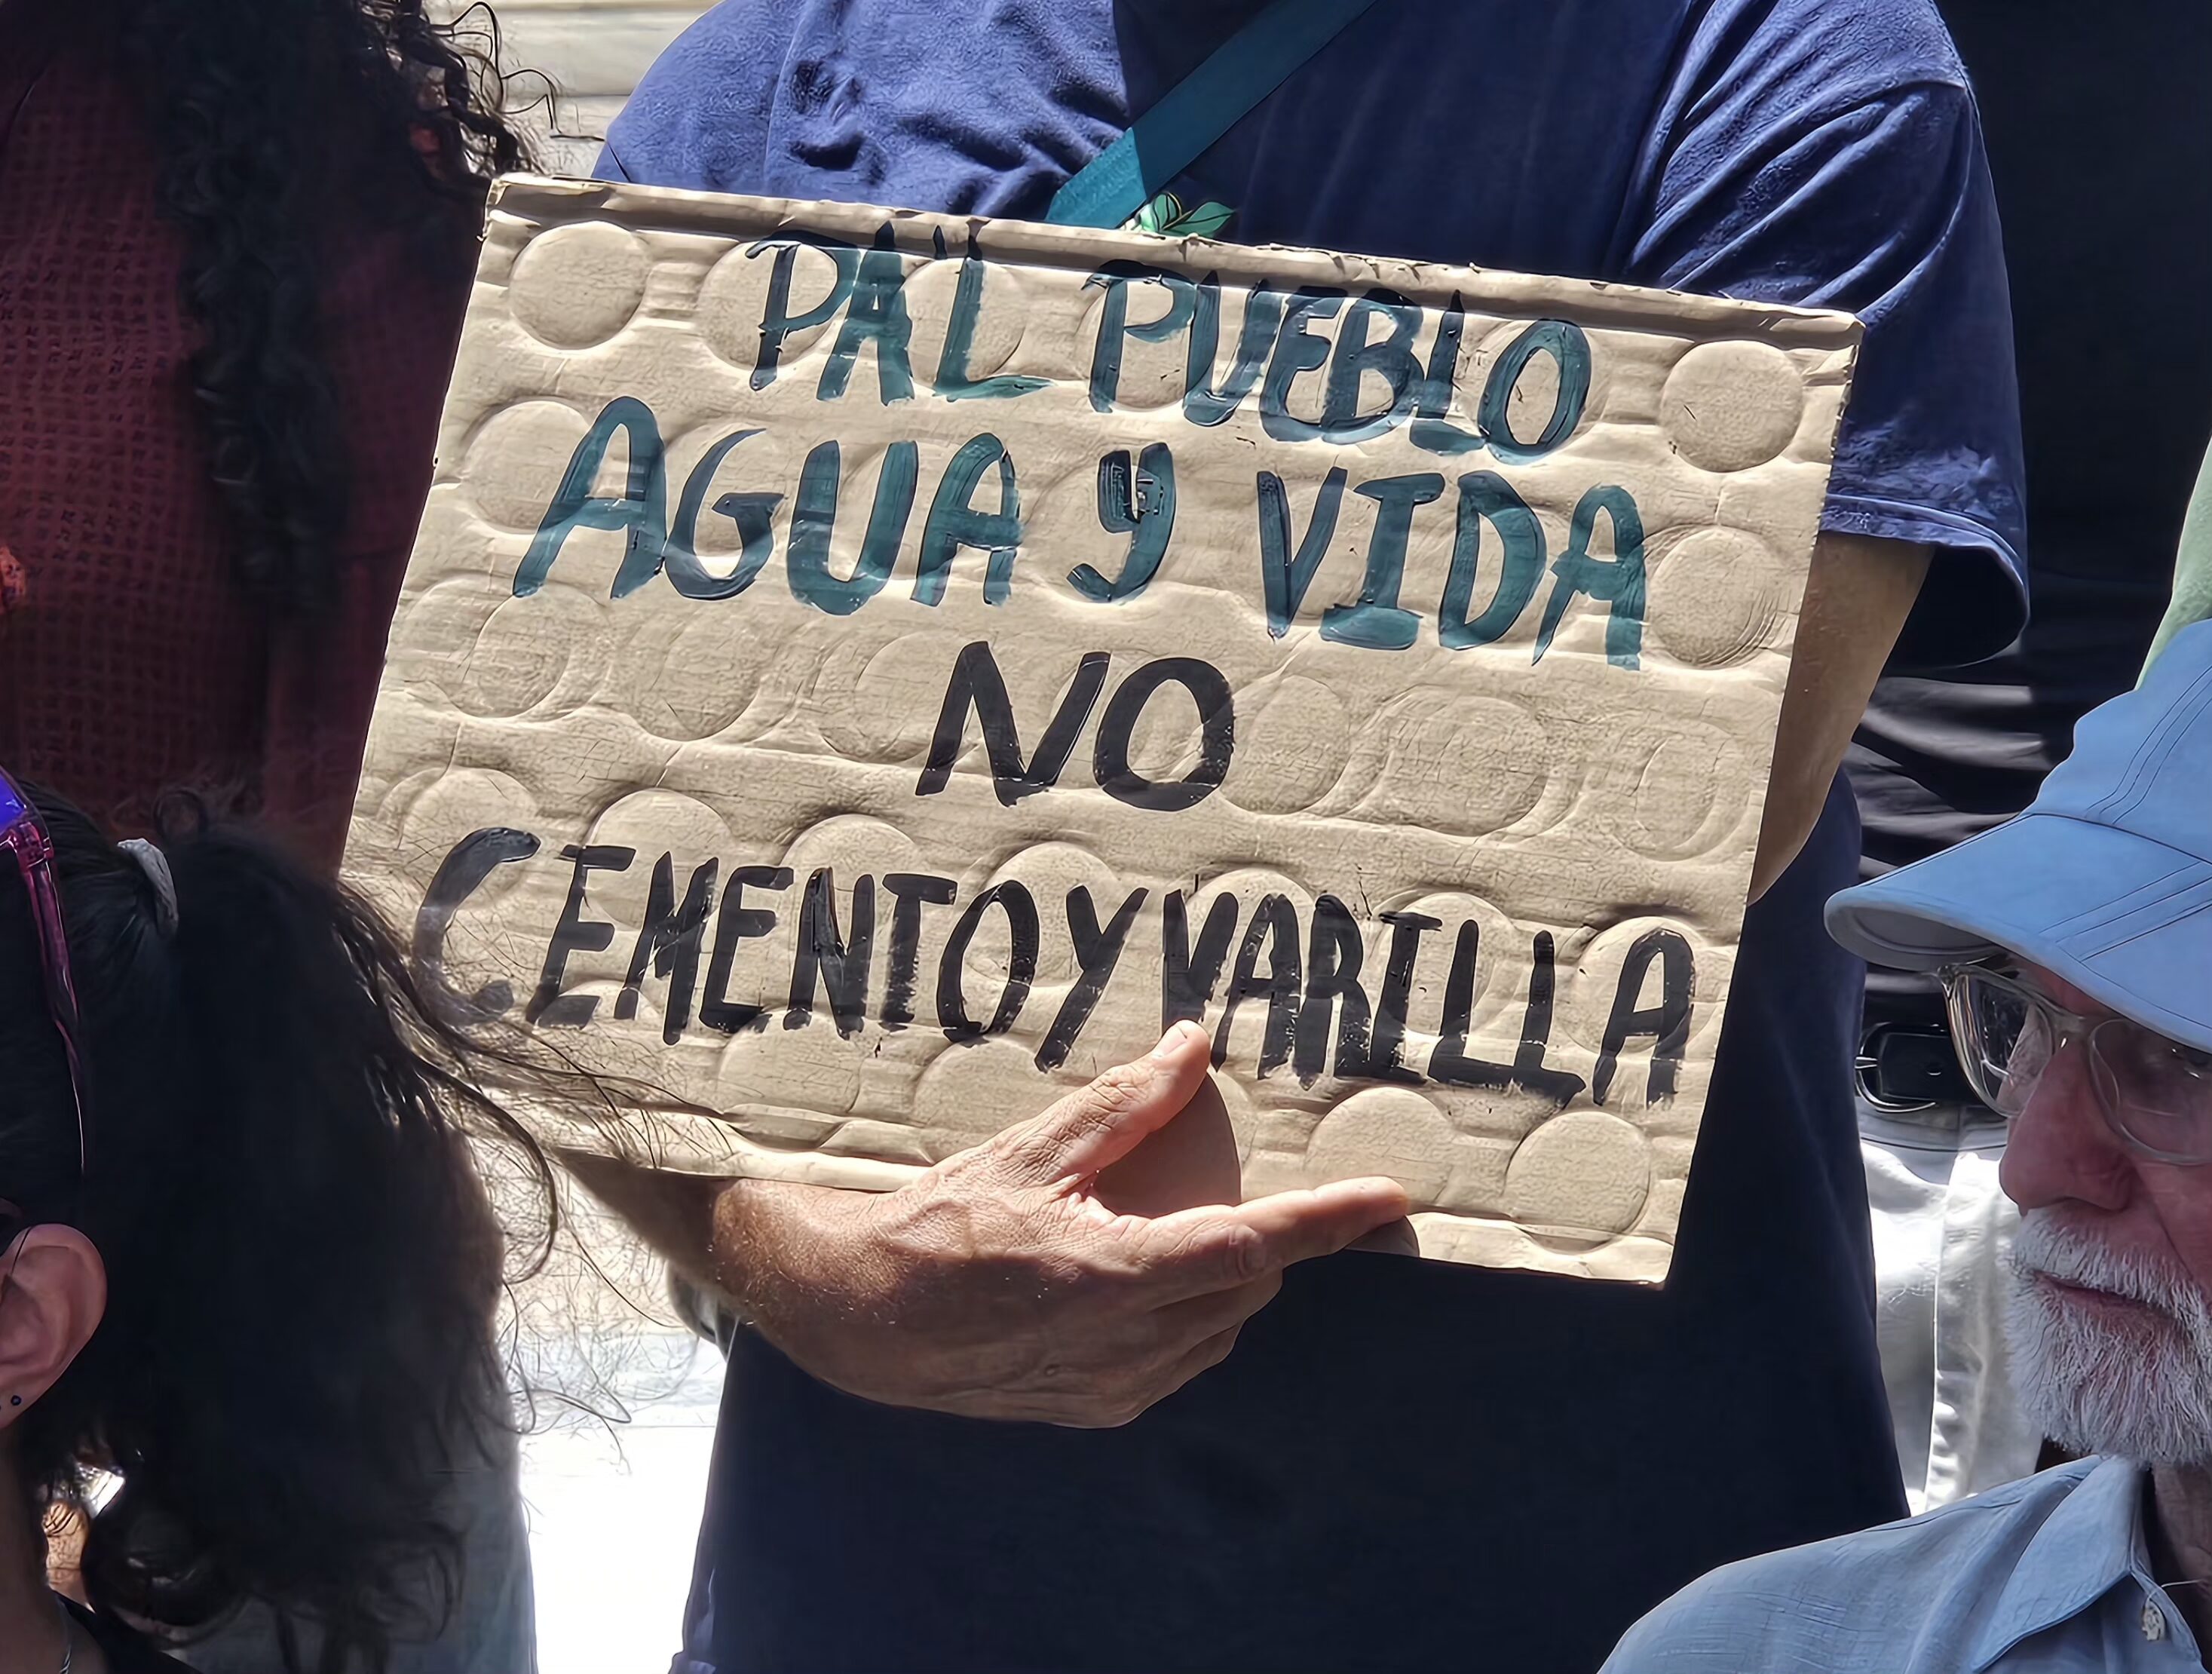 PA'L PUEBLO
AGUA Y VIDA
NO
CEMENTO Y VARILLA